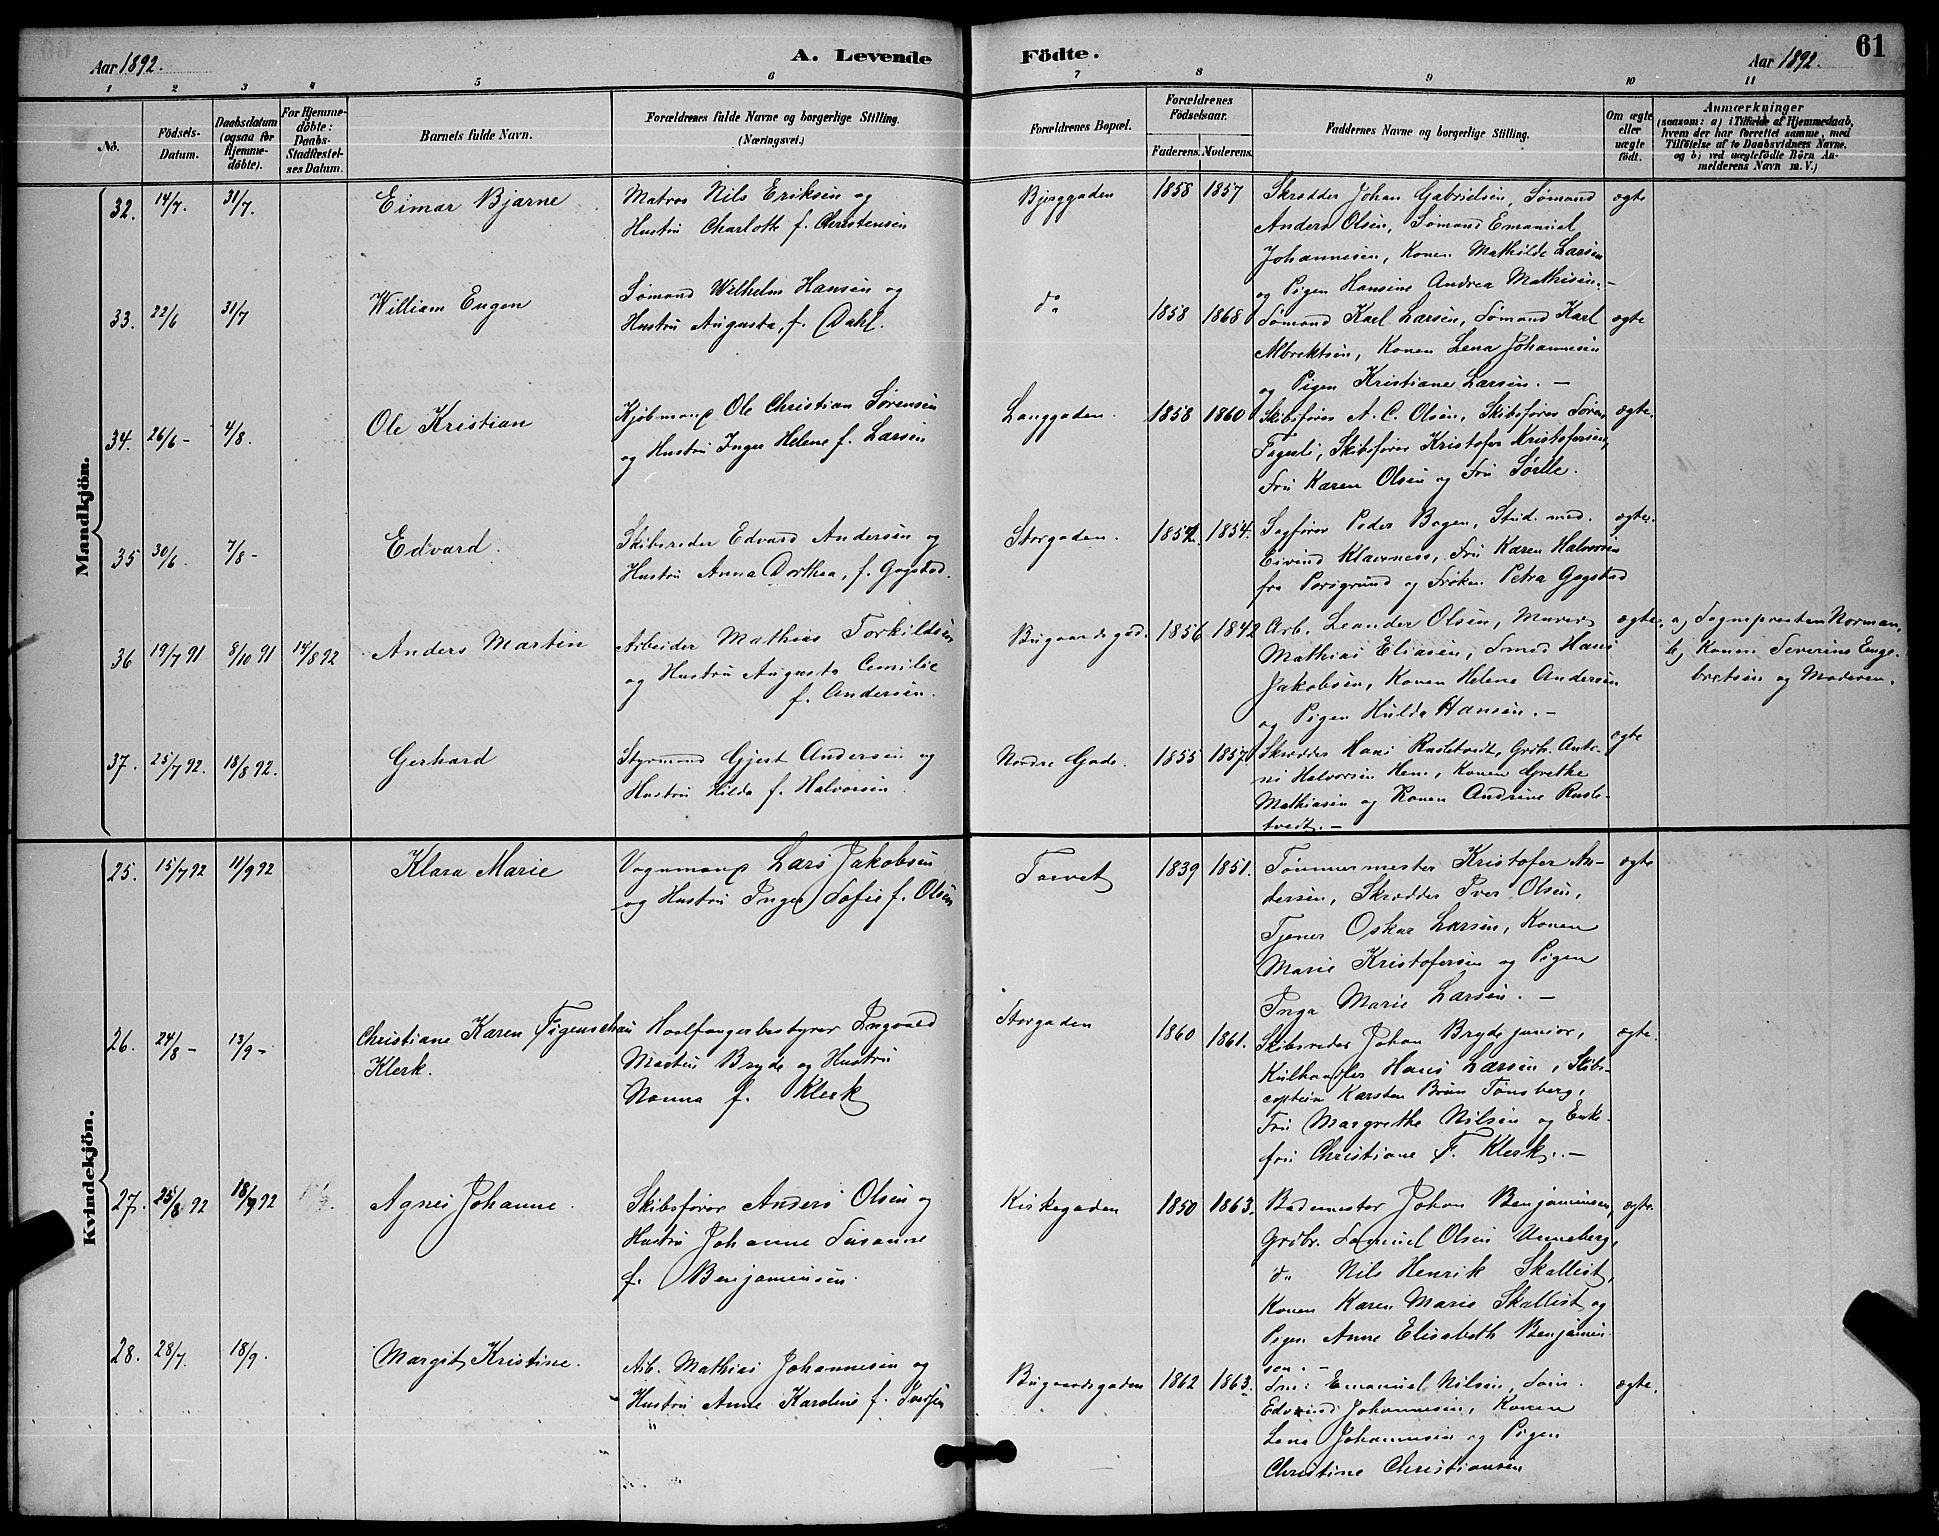 Aar 1892.
A. Levende Födte.
Aar 1892.
61
1 2 3 4 5 6 7 8 9 10 11
No.
Födsels-Datum.
Daabsdatum (ogsaa for Hjemme-döbte).
For Hjemme-döbte: Daabs-Stadfæstel-ses Datum.
Barnets fulde Navn.
Forældrenes fulde Navne og borgerlige Stilling. (Næringsvei.)
Forældrenes Bopæl.
Forældrenes Födselsaar.
Faderens. Moderens.
Faddernes Navne og borgerlige Stilling.
Om ægte eller uægte födt.
Anmærkninger
(saasom: a) i Tilfælde af Hjemmedaab, hvem der har forrettet samme, med Tilföielse af to Daabsvidners Navne. og b) ved uægtefödte Börn An-melderens Navn m. V.)
Mandkjön.
32. 14/7. 31/7. Eimar Bjarne
Matros Nils Eriksen og
Hustru Charlotte f. Christensen
Bjerggaden 1858 1857
Skrædder Johan Gabrielsen, Sømand
Anders Olsen, Sømand Emanuel
Johannesen, Konen Mathilde Larsen
og Pigen Hansine Andrea Mathisen.-
ægte
33. 22/6 31/7 William Eugen
Sømand Wilhelm Hansen og
Hustru Augusta, f. Dahl.
do 1858 1868
Sømand Karl Larsen, Sømand Karl
Albrektsen, Konen Lena Johannesen
og Pigen Kristiane Larsen. -
ægte
34. 26/6 - 4/8. Ole Kristian
Kjøbmand Ole Christian Sørensen
og Hustru Inger Helene f. Larsen
Langgaden. 1858 1860
Skibsfører A. C. Olsen, Skibsfører Søren
Fagerli, Skibsfører Kristofer Kristofersen,
Fru Karen Olsen og Fru Sørlle.
ægte.
35 30/6. 7/8 - Edvard.
Skibsreder Edvard Andersen og
Hustru Anna Dorthea, f. Gogstad.
Storgaden. 1852. 1854.
Sagfører Peder Bogen, Stud. med.
Eivind Klaveness, Fru Karen Halvorsen
fra Porsgrund og Frøken Petra Gogstad
ægte.
36 19/7 91 8/10 91 14/8 92 Anders Martin
Arbeider Mathias Torkildsen
og Hustru Augusta Emilie
f. Andersen.
Bugaardsgad. 1856 1842
Arb. Leander Olsen, Murer
Mathias Eliasen, Smed Hans
Jakobsen, Konen Helene Andersen
og Pigen Hulda Hansen. -
ægte.
a) Sognepresten Norman.
b) Konen Severine Enge-
bretsen og Moderen.
37. 25/7 92. 18/8 92. Gerhard
Styrmand Gjert Andersen og
Hustru Hilda f. Halvorsen.
Nordre Gade. 1855 1857
Skrædder Hans Rustetvedt, Grdb. Anto-
ni Halvorsen Hem, Konen Grethe
Mathiasen og Konen Andrine Ruste-
tvedt. -
ægte
Kvindekjön.
25. 15/7 92 11/9 92 Klara Marie
Vognmand Lars Jakobsen
og Hustru Inger Sofie f. Olsen
Torvet 1839 1851.
Tømmermester Kristofer An-
dersen, Skrædder Iver Olsen,
Tjener Oskar Larsen, Konen
Marie Kristofersen og Pigen
Inga Marie Larsen. -
ægte
26. 24/8 - 13/9 - Christiane Karen Figenschau
Klerk.
Hvalfangerbestyrer Ingvald
Martin Bryde og Hustru
Nanna f. Klerk
Storgaden 1860 1861.
Skibsreder Johan Bryde junior,
Kulhandler Hans Larsen, Skibs-
captein Karsten Bruun Tønsberg,
Fru Margrethe Nilsen og Enke-
fru Christiane F. Klerk. -
ægte.
27. 25/8 92 18/9 92 Agnes Johanne.
Skibsfører Anders Olsen og
Hustru Johanne Susanne
f. Benjaminsen.
Kirkegaden 1850 1863.
Bademester Johan Benjaminsen,
Grdbr. Samuel Olsen Unneberg,
do Nils Henrik Skallist,
Konen Karen Marie Skallist og
Pigen Anne Elisabeth Benjamin-
sen. -
ægte.
28. 28/7. 18/9. Margit Kristine.
Arb. Mathias Johannesen og
Hustru Anne Karoline f. Iversen
Bugaardsgaden 1862 1863.
Emanuel Nilsen,
Johannesen, Konen
Lena Johannesen og Pigen
Christine Christiansen
ægte.